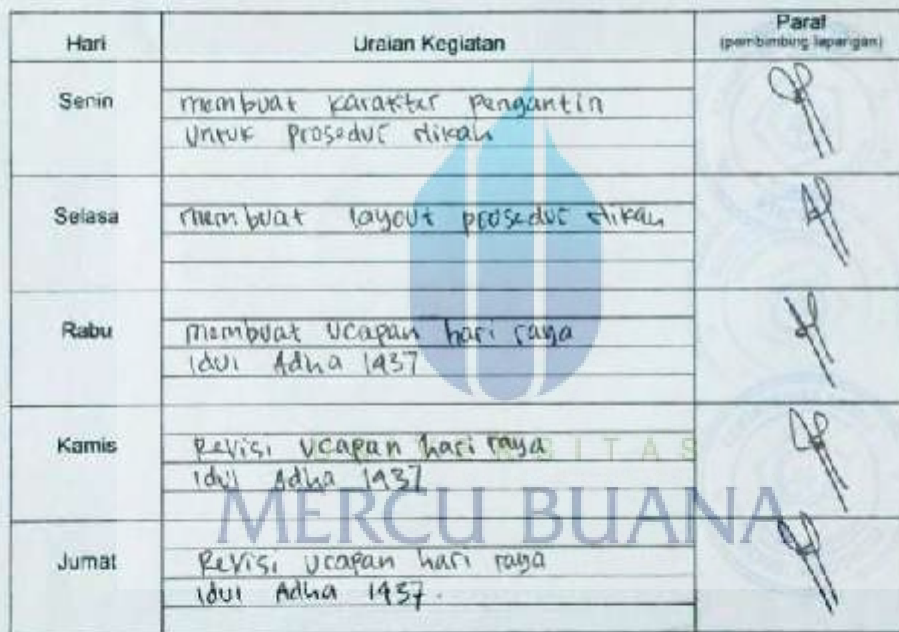 Hari Uraian Kegiatan Paraf
(pembimbing lapangan)
Senin membuat karakter pengantin
untuk prosedur nikah
Selasa membuat layout prosedur nikah
Rabu membuat ucapan hari raya
idul Adha 1437
Kamis Revisi ucapan hari raya
idul Adha 1437
Jumat Revisi ucapan hari raya
idul Adha 1437.
SITAS
MERCU BUANA